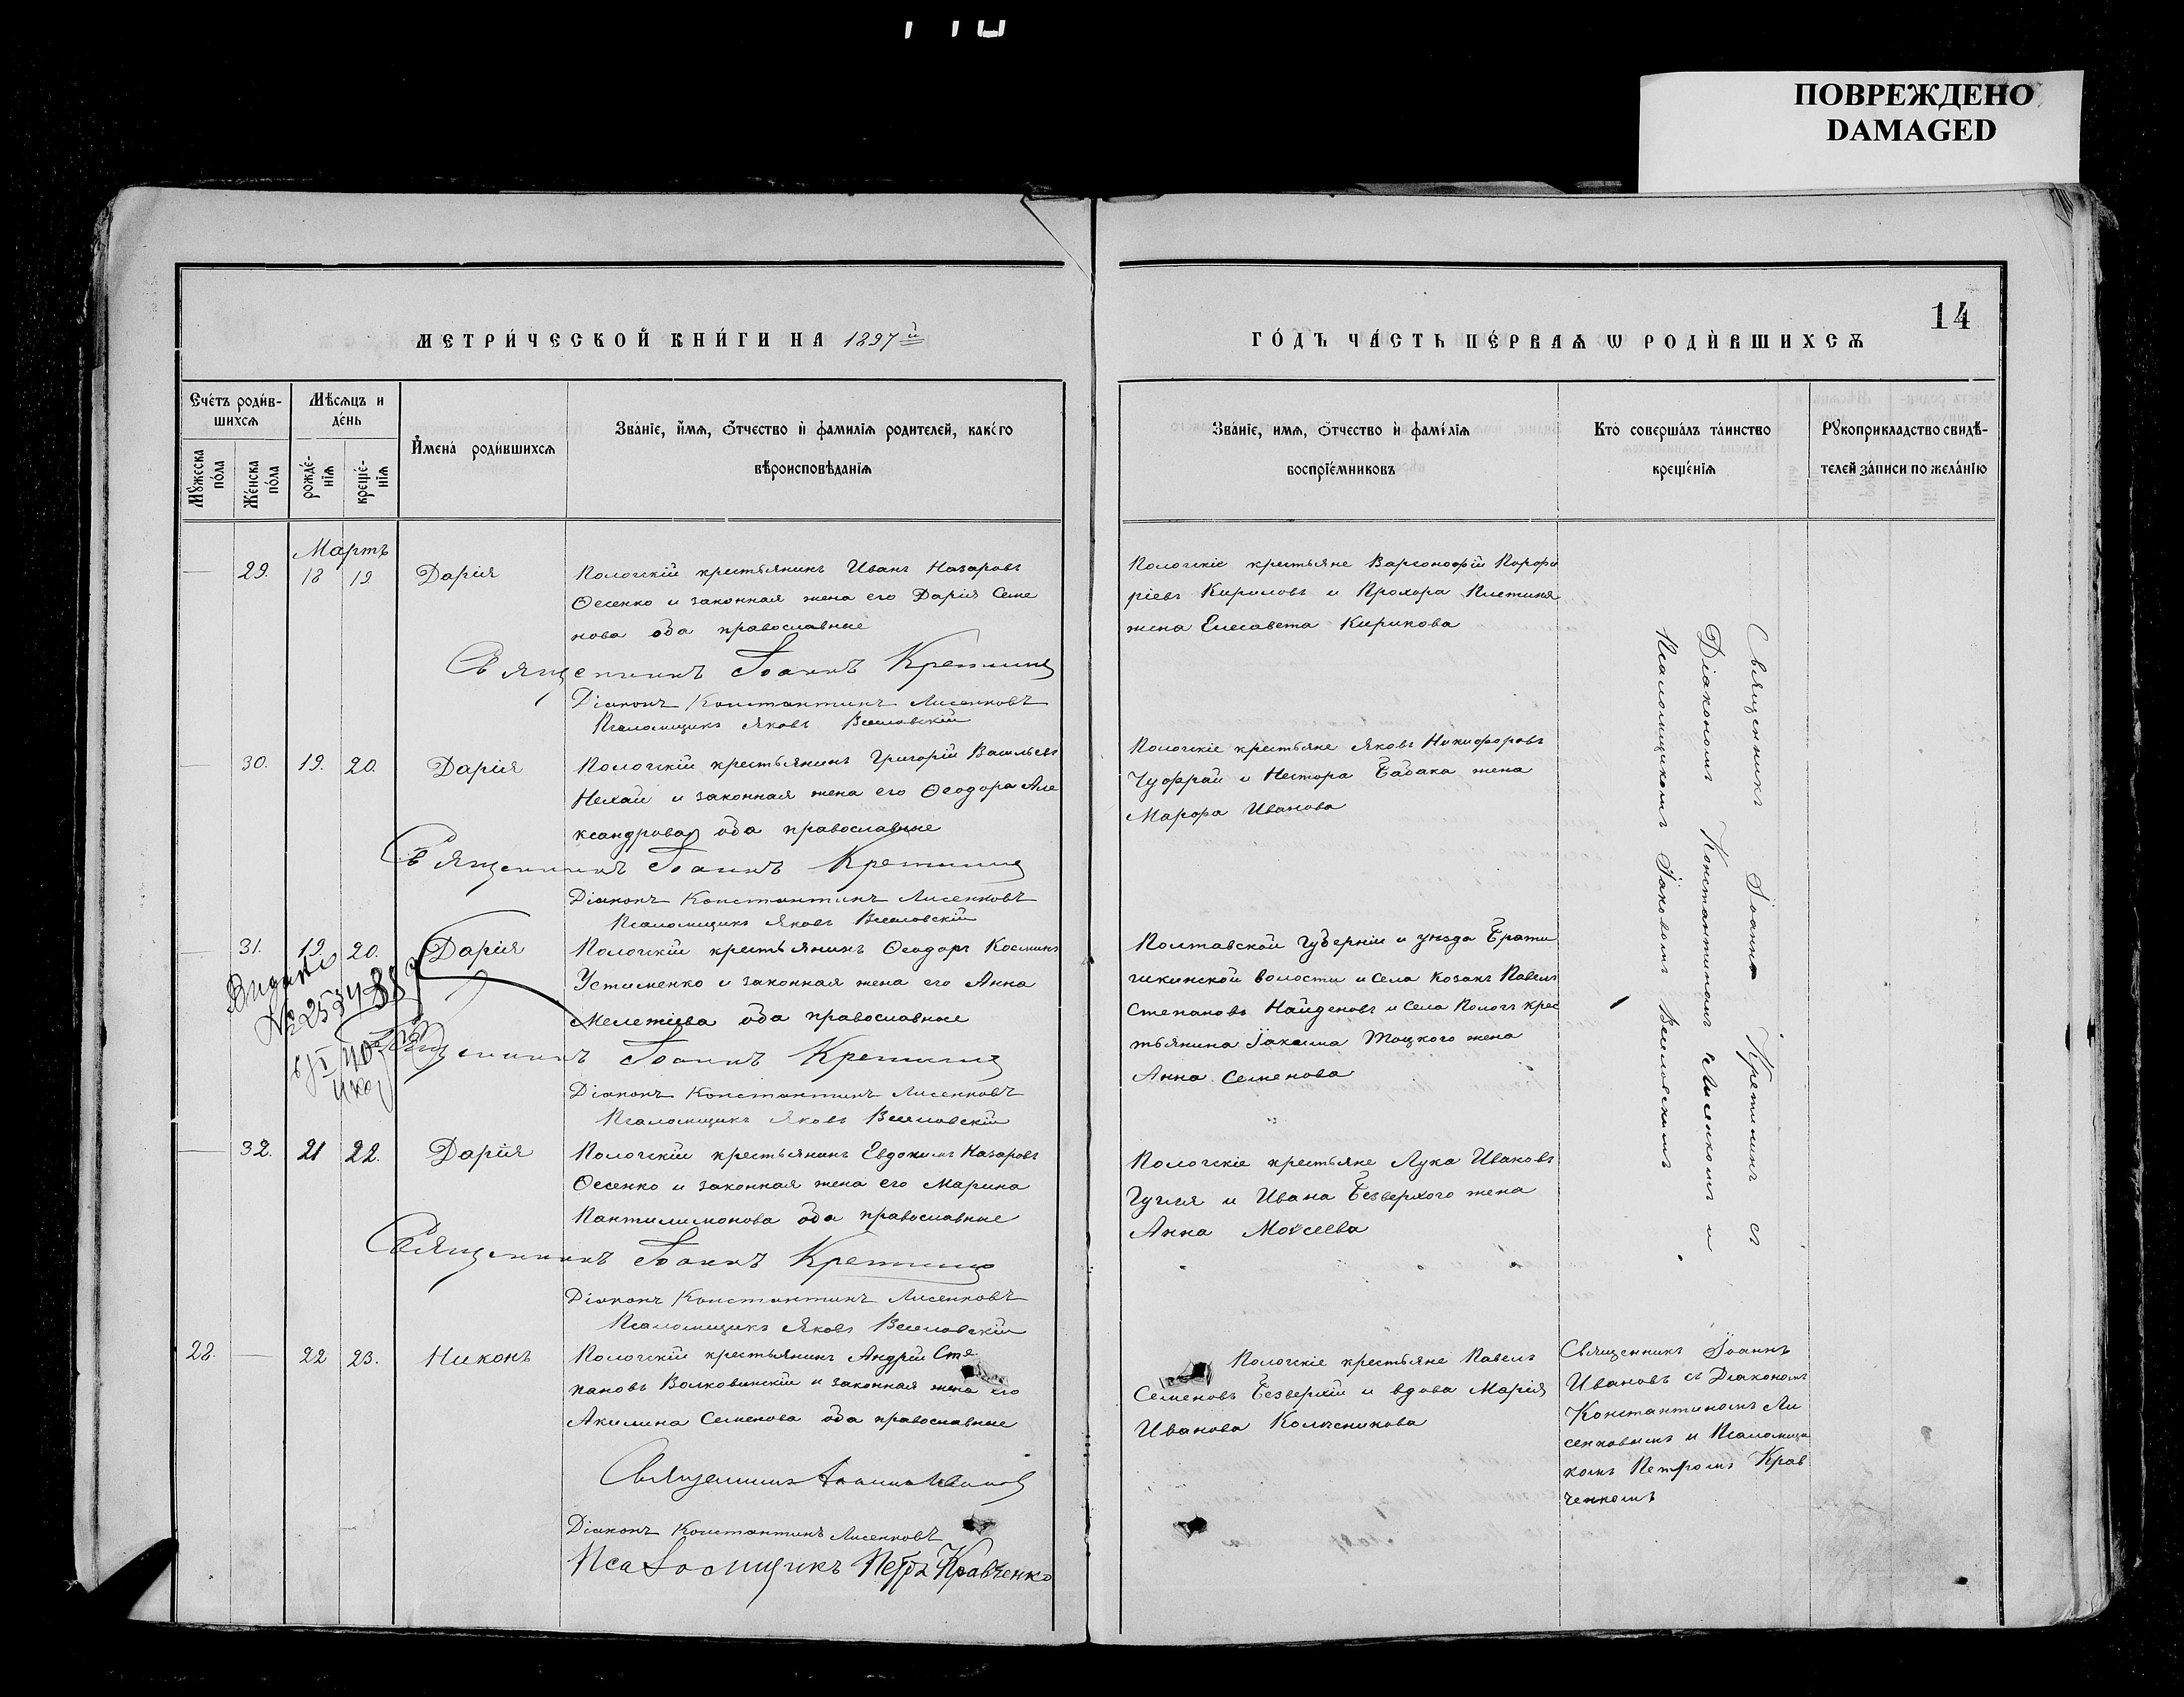 ПОВРЕЖДЕНО
DAMAGED
14
МЕТРИ́ЧЕСКОЙ КНИ́ГИ НА 1897й
ГО́ДЪ ЧА́СТЬ ПЕ́РВАѦ Ѡ РОДИ́ВШИХСѦ
Сче́тъ роди́в-
шихсѧ
Мѣ́сѧцъ и
де́нь
Мꙋ́жеска
по́ла
Же́нска
по́ла
рожде́-
нїѧ
креще́-
нїѧ
Имена̀ роди́вшихсѧ
Зва́нїе, и́мѧ, ѻ́тчество и҆ фами́лїѧ роди́телей, како́гѡ
вѣроисповѣ́данїѧ
Зва́нїе, и́мѧ, ѻ́тчество и҆ фамі́лїѧ
воспрїе́мниковъ
Кто̀ соверша́лъ та́инство
креще́нїѧ
Рꙋкоприкла́дство свидѣ́-
телей за́писи по жела́нїю
Мартъ
29. 18 19 Дарія
Пологскій крестьянинъ Иванъ Назаровъ
Ѳесенко и законная жена его Дарія Семе
нова оба православные
Священникъ Іоаннъ Кретининъ
Діаконъ Константинъ Лисенковъ
Псаломщикъ Яковъ Веселовскій
Пологскіе крестьяне Варсонофій Порфи
ріевъ Кириловъ и Прохора Плетиня
жена Елисавета Кирикова
30. 19. 20. Дарія
Пологскій крестьянинъ Григорій Васильевъ
Нехай и законная жена его Ѳеодора Але
ксандрова оба православные
Священникъ Іоаннъ Кретининъ
Діаконъ Константинъ Лисенковъ
Псаломщикъ Яковъ Веселовскій
Пологскіе крестьяне Яковъ Никифоровъ
Чуфрай и Нестора Бабака жена
Марфа Иванова
31. 19. 20. Дарія
Видано
№ 2534
Пологскій крестьянинъ Ѳеодоръ Косминъ
Устименко и законная жена его Анна
Мелетіева оба православные
Священникъ Іоаннъ Кретининъ
Діаконъ Константинъ Лисенковъ
Псаломщикъ Яковъ Веселовскій
Полтавской губерніи и уѣзда Брати
шкинской волости и села козакъ Павелъ
Степановъ Найденовъ и села Пологъ крес
тьянина Іакима Тоцкого жена
Анна Семенова
32. 21 22. Дарія
Пологскій крестьянинъ Евдокимъ Назаровъ
Ѳесенко и законная жена его Марина
Пантилимонова оба православные
Священникъ Іоаннъ Кретининъ
Діаконъ Константинъ Лисенковъ
Псаломщикъ Яковъ Веселовскій
Пологскіе крестьяне Лука Ивановъ
Гугля и Ивана Безверхого жена
Анна Моѵсеева
Священникъ Іоаннъ Кретининъ съ
Діакономъ Константиномъ Лисенкомъ и
Псаломщикомъ Іаковомъ Веселовскимъ
28. 22 23. Никонъ
Пологскій крестьянинъ Андрей Сте
пановъ Волковинскій и законная жена его
Акилина Семенова оба православные
Священникъ Іоаннъ Ивановъ
Діаконъ Константинъ Лисенковъ
Псаломщикъ Петръ Кравченко
Пологскіе крестьяне Павелъ
Семеновъ Безверхій и вдова Марія
Иванова Колѣсникова
Священникъ Іоаннъ
Ивановъ съ Діакономъ
Константиномъ Ли
сенковымъ и Псаломщи
комъ Петромъ Крав
ченкомъ